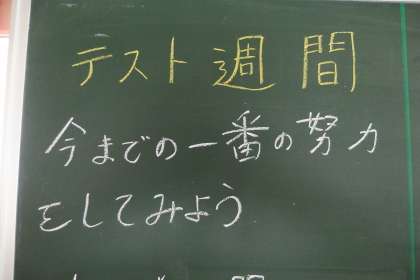 テスト週間
今までの一番の努力
をしてみよう